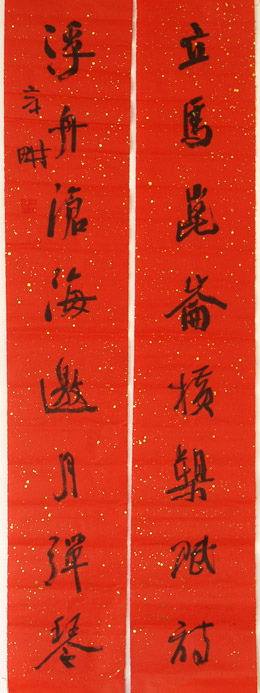 立馬崑崙橫槊賦詩
浮舟滄海邀月彈琴